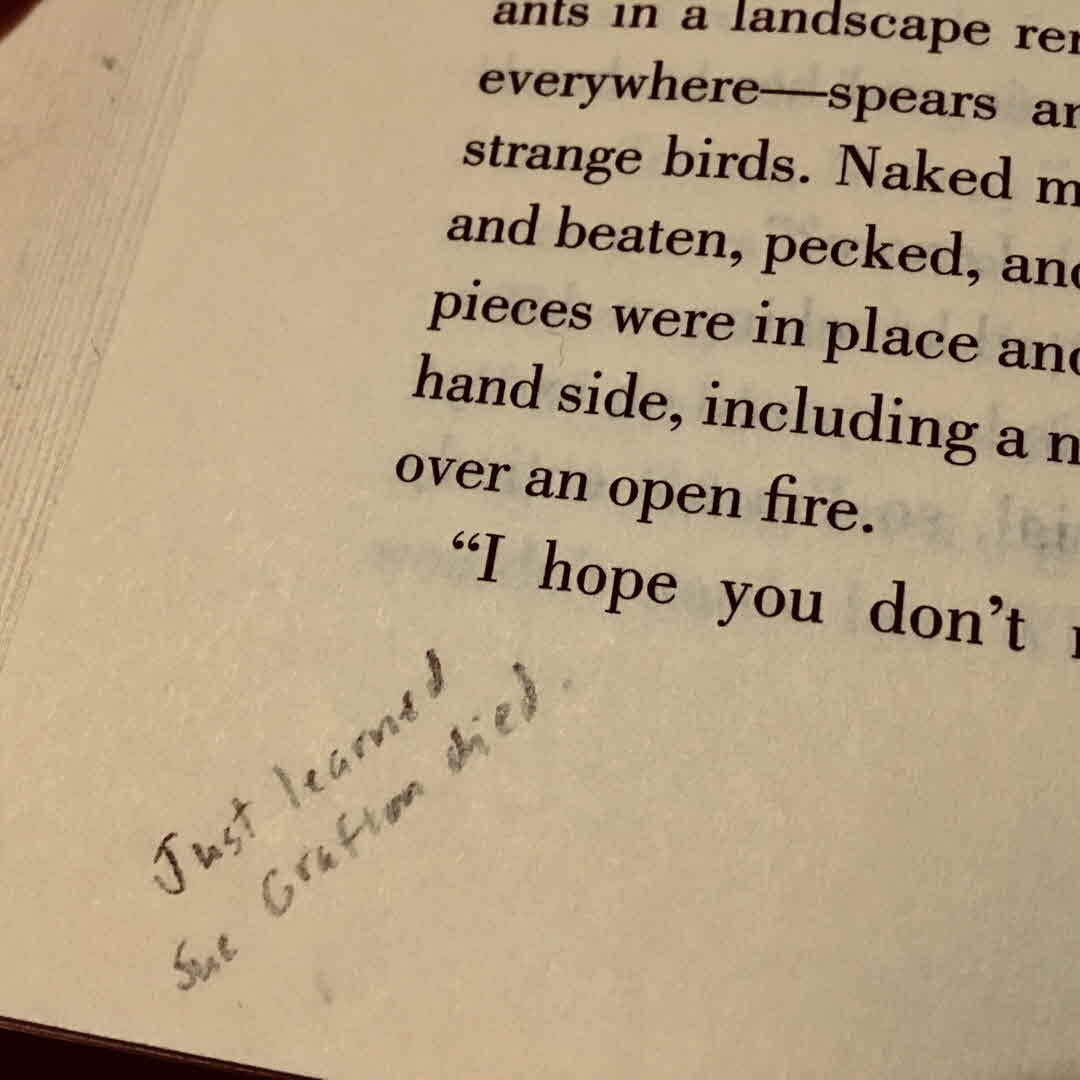 ants in a landscape rer
everywhere—spears ar
strange birds. Naked m
and beaten, pecked, and
pieces were in place and
hand side, including a n
over an open fire.
“I hope you don’t
Just learned
Sue Grafton died.